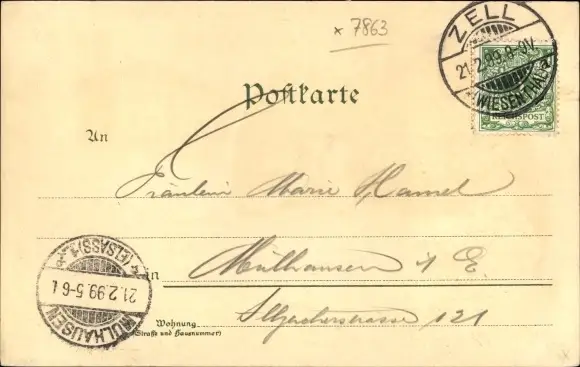 x 7863
ZELL
21.2.99.8-9V.
(WIESENTHAL)
REICHSPOST
Postkarte
An
Fräulein Marie Hamel
in Mülhausen i E.
Wohnung
(Straße und Hausnummer)
121
MÜLHAUSEN
21.2.99.5-6
(ELSASS)